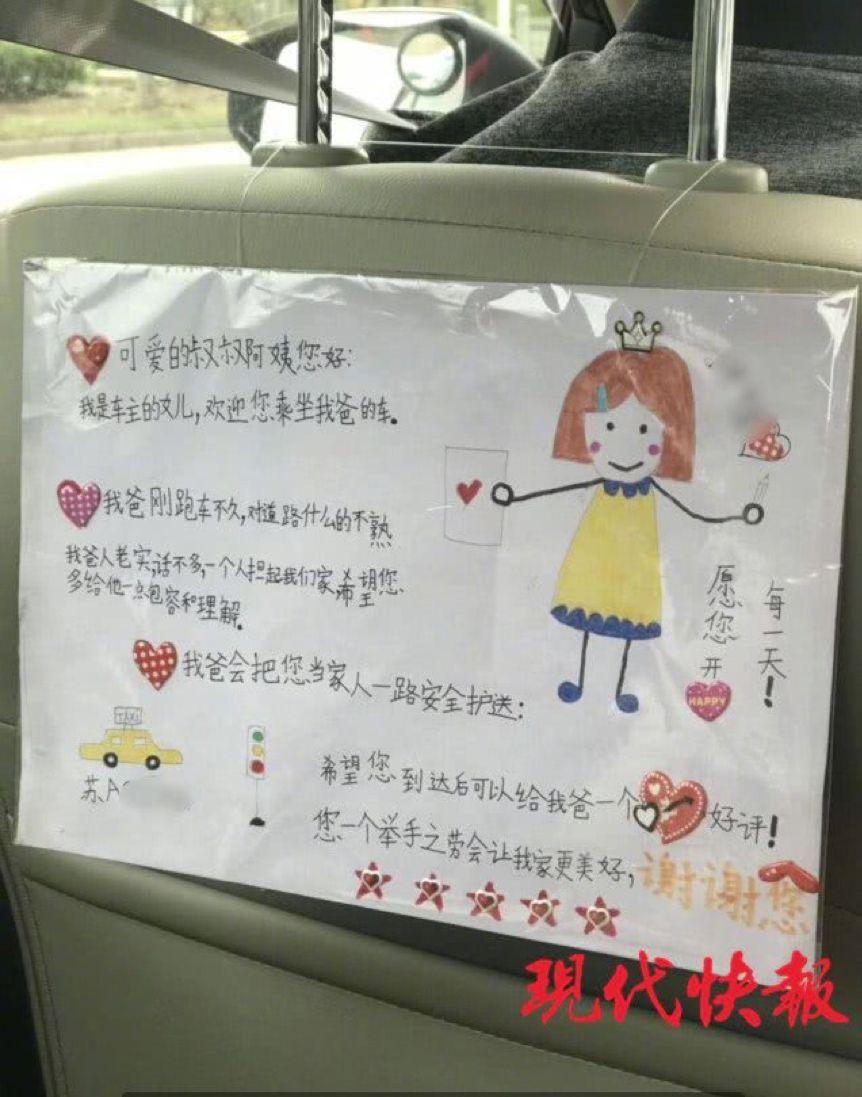 可爱的叔叔阿姨您好：
我是车主的女儿，欢迎您乘坐我爸的车。
我爸刚跑车不久，对道路什么的不熟
我爸人老实，话不多，一个人担起我们家，希望您
多给他一点包容和理解。
我爸会把您当家人一路安全护送：
愿您
每一天！
开
HAPPY
TAXI
苏A
希望您到达后可以给我爸一个好评！
您一个举手之劳会让我家更美好，谢谢您
现代快報